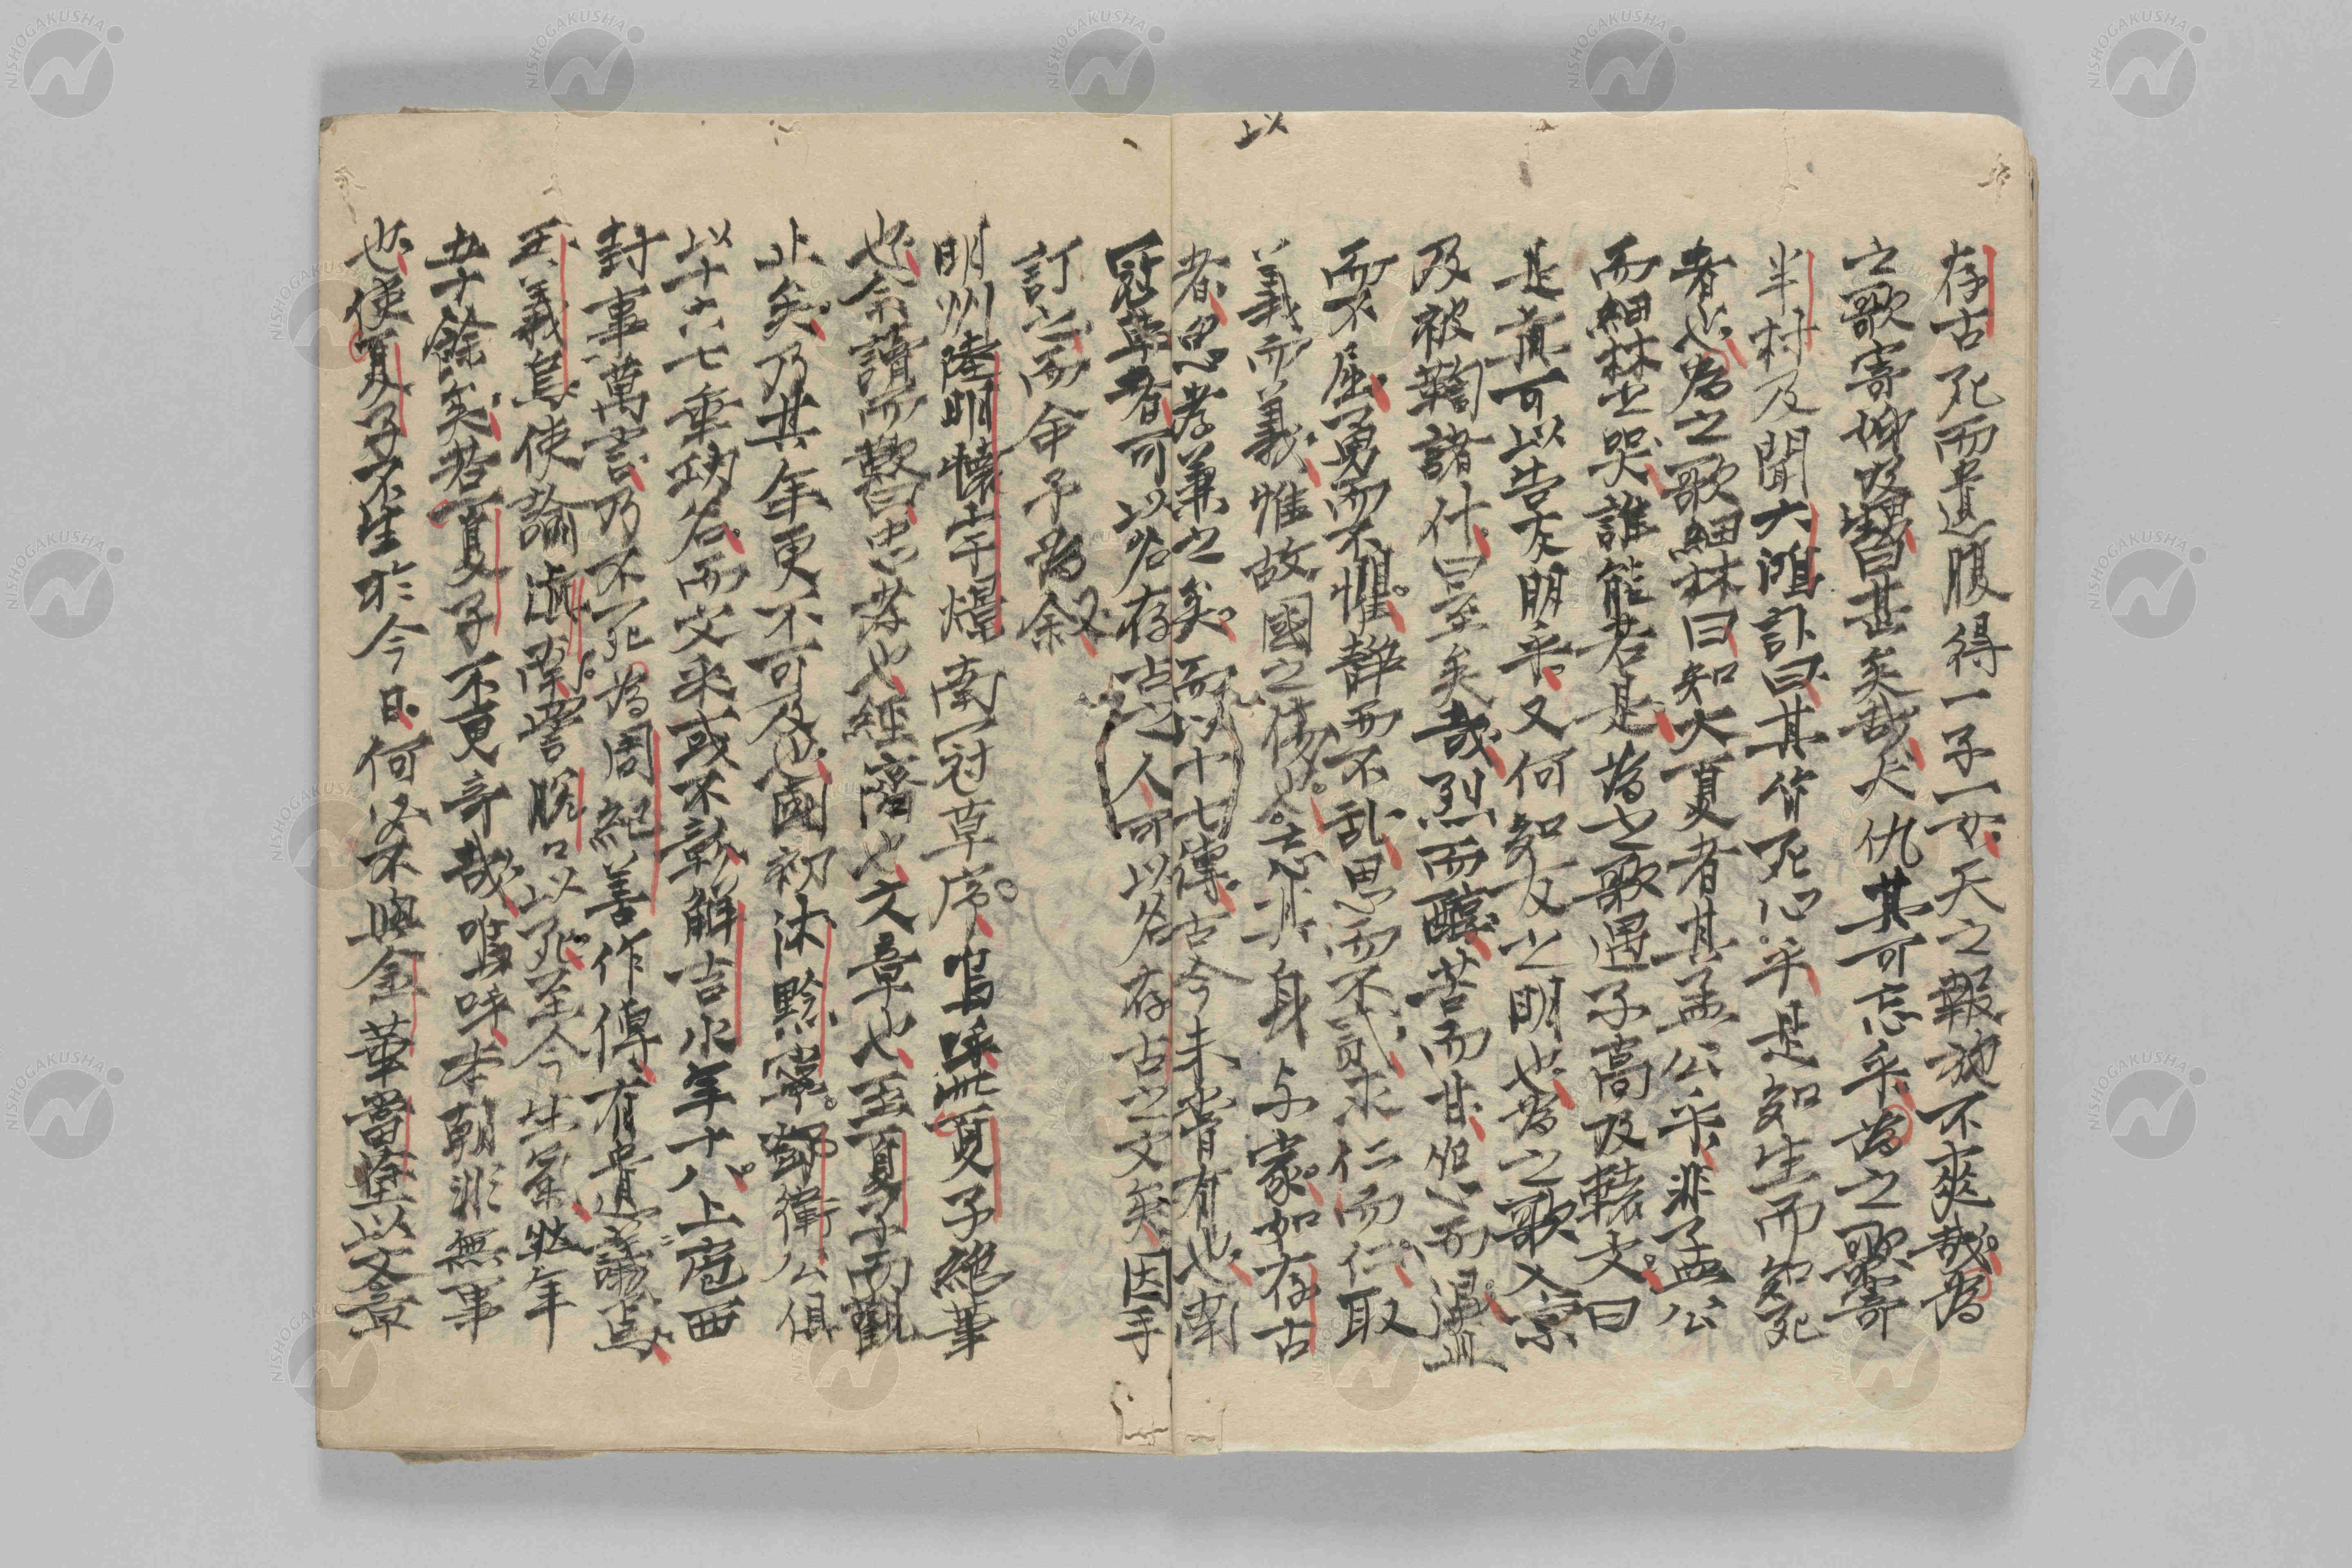 存古死而遺腹得一子一女天之報施不爽哉為
之歌寄姊及甥曰甚矣哉大仇其可忘乎為之歌寄
半村及聞大鴻訃曰其作死心乎是知生而知死
者也為之歌細林曰知大夏者其孟公乎非孟公
而細林之哭誰能若是為之歌遇子高及轅文曰
是真可以告友朋乎又何知友之明也為之歌入京
及被鞫諸什曰至矣哉烈而醇苦而甘怨而温直
而不屈勇而不懼静而不乱思而不貳求仁而仁取
義而義惟故國之情忘其身与家如存古
者忠孝兼之矣而以十七傳古今未嘗有也南
冠草者可以名存古之人可以名存古之文矣因手
訂之而命予為叙
明州陸明懷士煜南冠草序嗚呼此夏子絶筆
也余讀而歎曰忠孝也經濟也文章也玉夏子而觀
止矣乃其年更不可及也國初沐黔寧鄧衛公俱
以十六七垂功名而文采或不彰解吉水年十八上庖西
封事萬言乃不死為周紀善作傳有遺議焉
王義烏使諭滇南罵脱口以死至今生氣此年
五十餘矣若夏子不更奇哉嗚呼本朝非無事
也使夏子不生於今日何必不與金華當塗以文章
以
NISHOGAKUSHA